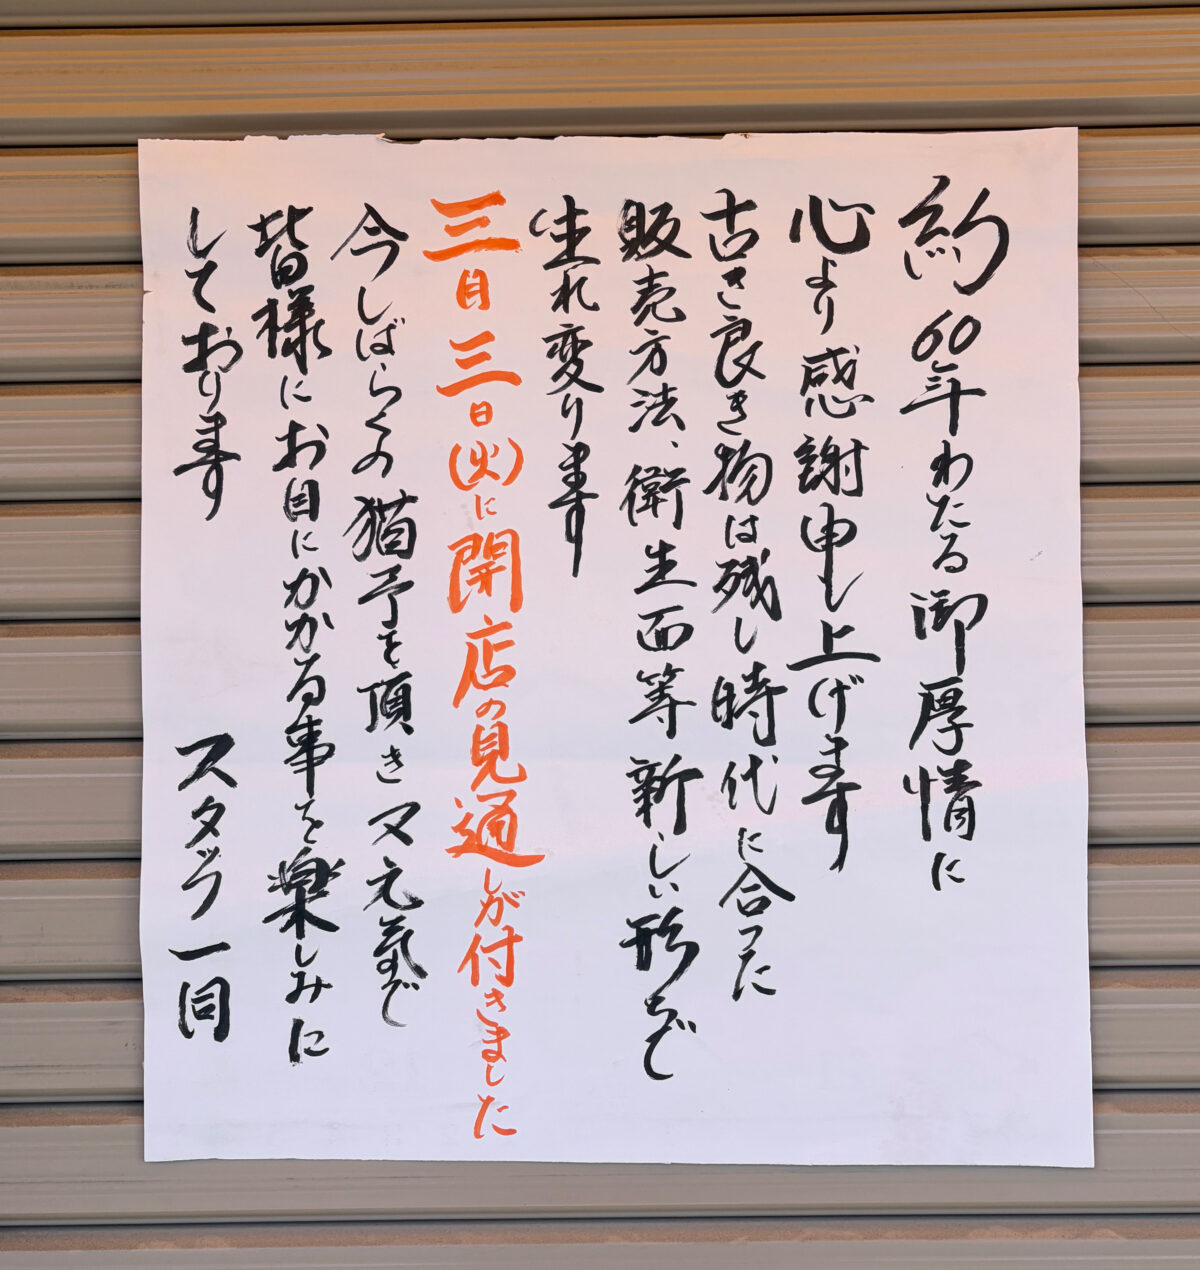 約60年わたる御厚情に
心より感謝申し上げます
古き良き物は残し時代に合った
販売方法、衛生面等新しい形など
生れ変ります
三月三日(火)に開店の見通しが付きました
今しばらくの猶予を頂きマタ元気で
皆様にお目にかかる事を楽しみに
しております
スタッフ一同